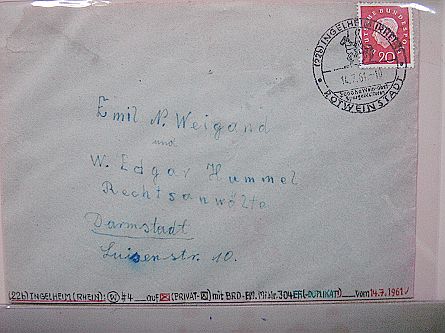 (22b) INGELHEIM (RHEIN)
DEUTSCHE BUNDESPOST
20
14.7.61-10
ROTWEINSTADT
Emil N. Weigand
und
W. Edgar Hummel
Rechtsanwälte
Darmstadt
Luisenstr. 10.
(22b) INGELHEIM (RHEIN): #4 auf (PRIVAT-) mit BRD-EM. Mi. Nr. 304 vom 14.7.1961